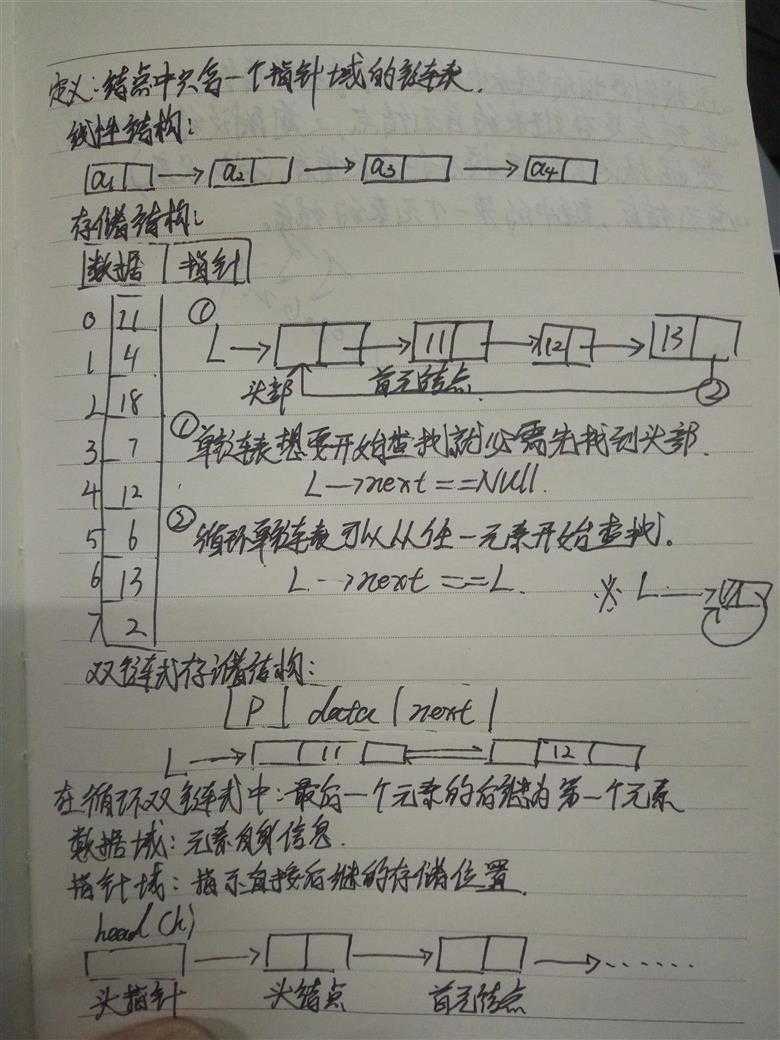 定义:结点中只含一个指针域的链表.
线性结构:
a1 → a2 → a3 → a4
存储结构:
数据 指针
0 21
1 4
2 18
3 7
4 12
5 6
6 13
7 2
① L → 11 → 12 → 13
头部 首元结点 ②
①单链表想要开始查找就必需先找到头部.
L→next==Null.
②循环单链表可以从任一元素开始查找.
L→next==L. ※ L →
双链式存储结构:
P data next
L → 11 12
在循环双链式中:最后一个元素的后继为第一个元素
数据域:元素自身信息.
指针域:指示直接后继的存储位置.
head(h)
→ → → ······
头指针 头结点 首元结点